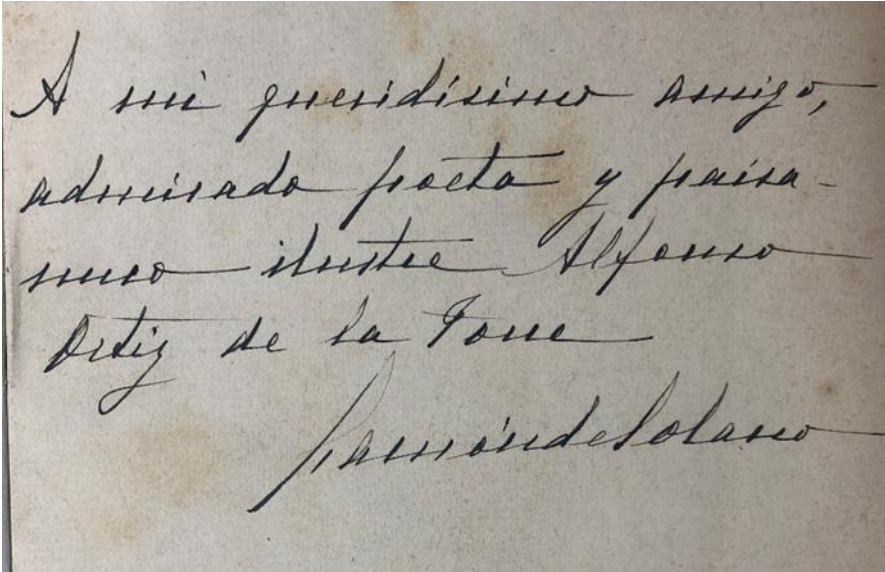 A mi queridísimo amigo,
admirado poeta y paisa-
nuco ilustre Alfonso
Ortiz de la Torre
Ramón de Solano